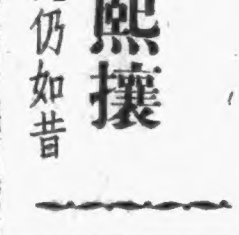 熙攘
仍如昔